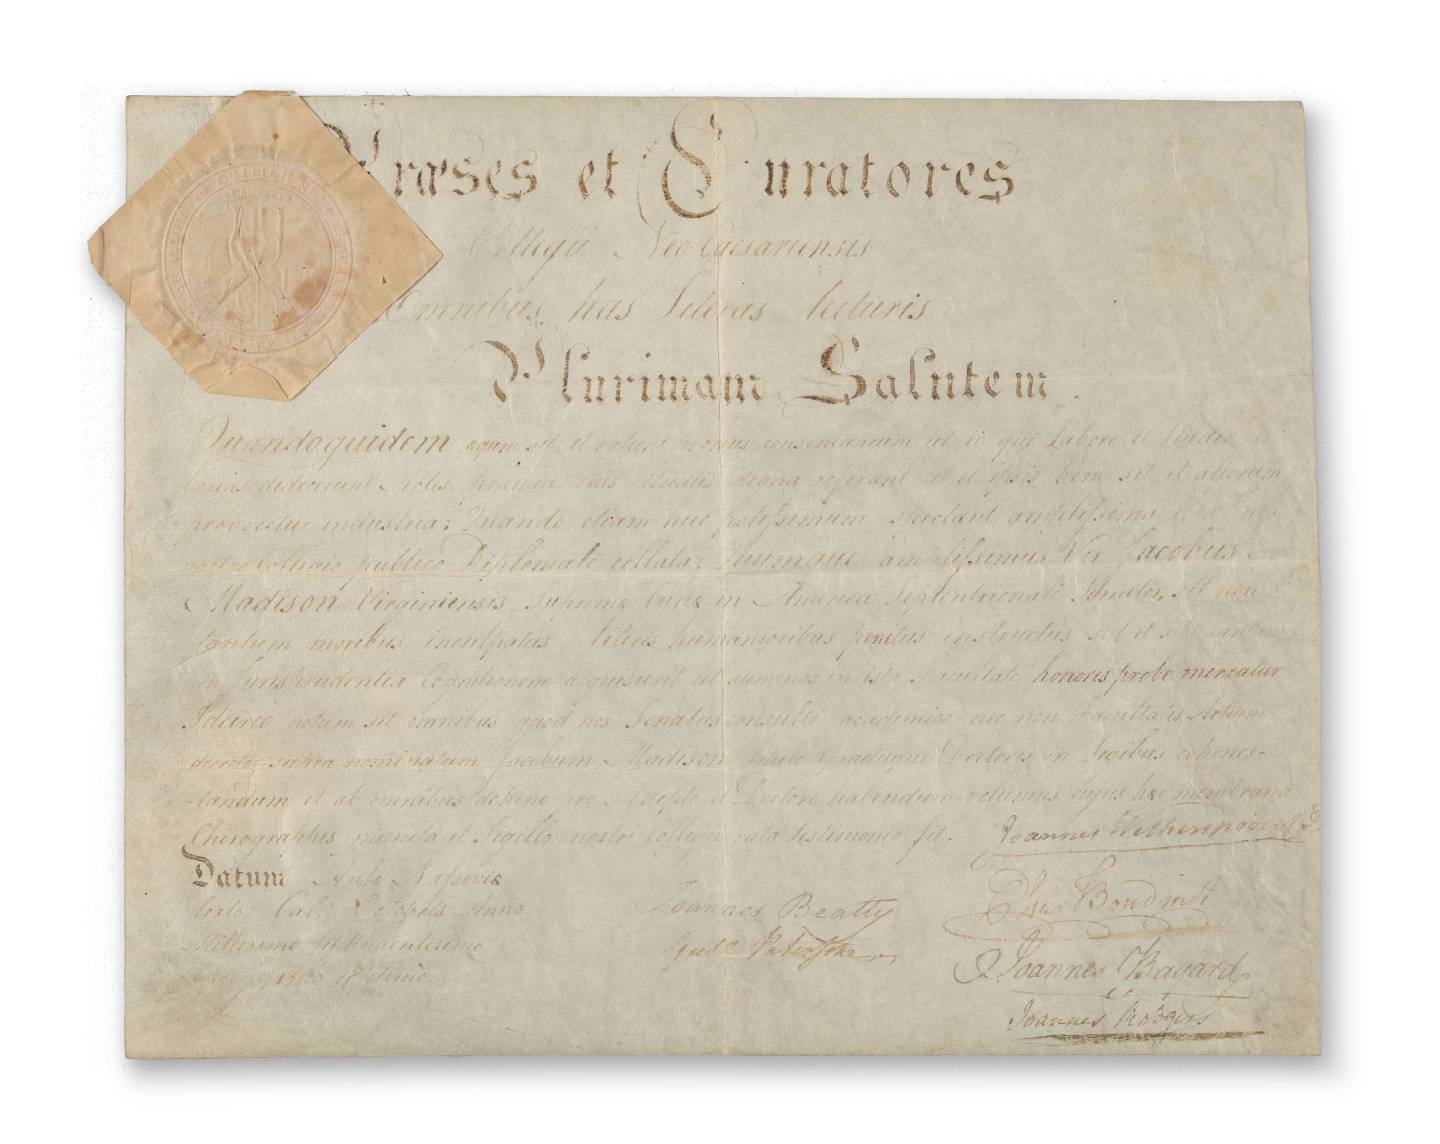 Præses et Curatores
Collegii Neo-Caesariensis
Omnibus has Literas lecturis
Plurimam Salutem.
Quandoquidem æquum sit et rationi prorsus consentaneum ut ii qui Labore et Studio
bonas didicerunt Artes præmia suis Studiis digna referant ut et ipsis bene sit et aliorum
provocetur industria; Quando etiam huc potissimum spectant amplissima illa jura
nostro Collegio publico Diplomate collata: Quumque amplissimus Vir Jacobus
Madison Virginiensis Supremæ Curiæ in America Septentrionali Senator, sit non
tantum moribus inculpatus literis humanioribus penitus instructus sed et
in Jurisprudentia Cognitionem acquisierit ut summos in ista Facultate honores probe mereatur
Idcirco notum sit omnibus quod nos Senatus consulto academico nec non Facultatis Artium
decreto supra nominatum Jacobum Madison titulo Graduque Doctoris in Legibus cohones-
-tandum et ab omnibus dehinc pro et Doctore habendum volumus cujus hæc membrana
Chirographis munita et Sigillo nostri Collegii rata testimonio sit. Joannes Witherspoon
Datum Aula Nassovica
sexto Cal: Octobris Anno
Millesimo Septingentesimo
Octogesimo Septimo.
Joannes Beatty
Guil. Paterson
Elias Boudinot
Joannes Bayard
Joannes Rodgers